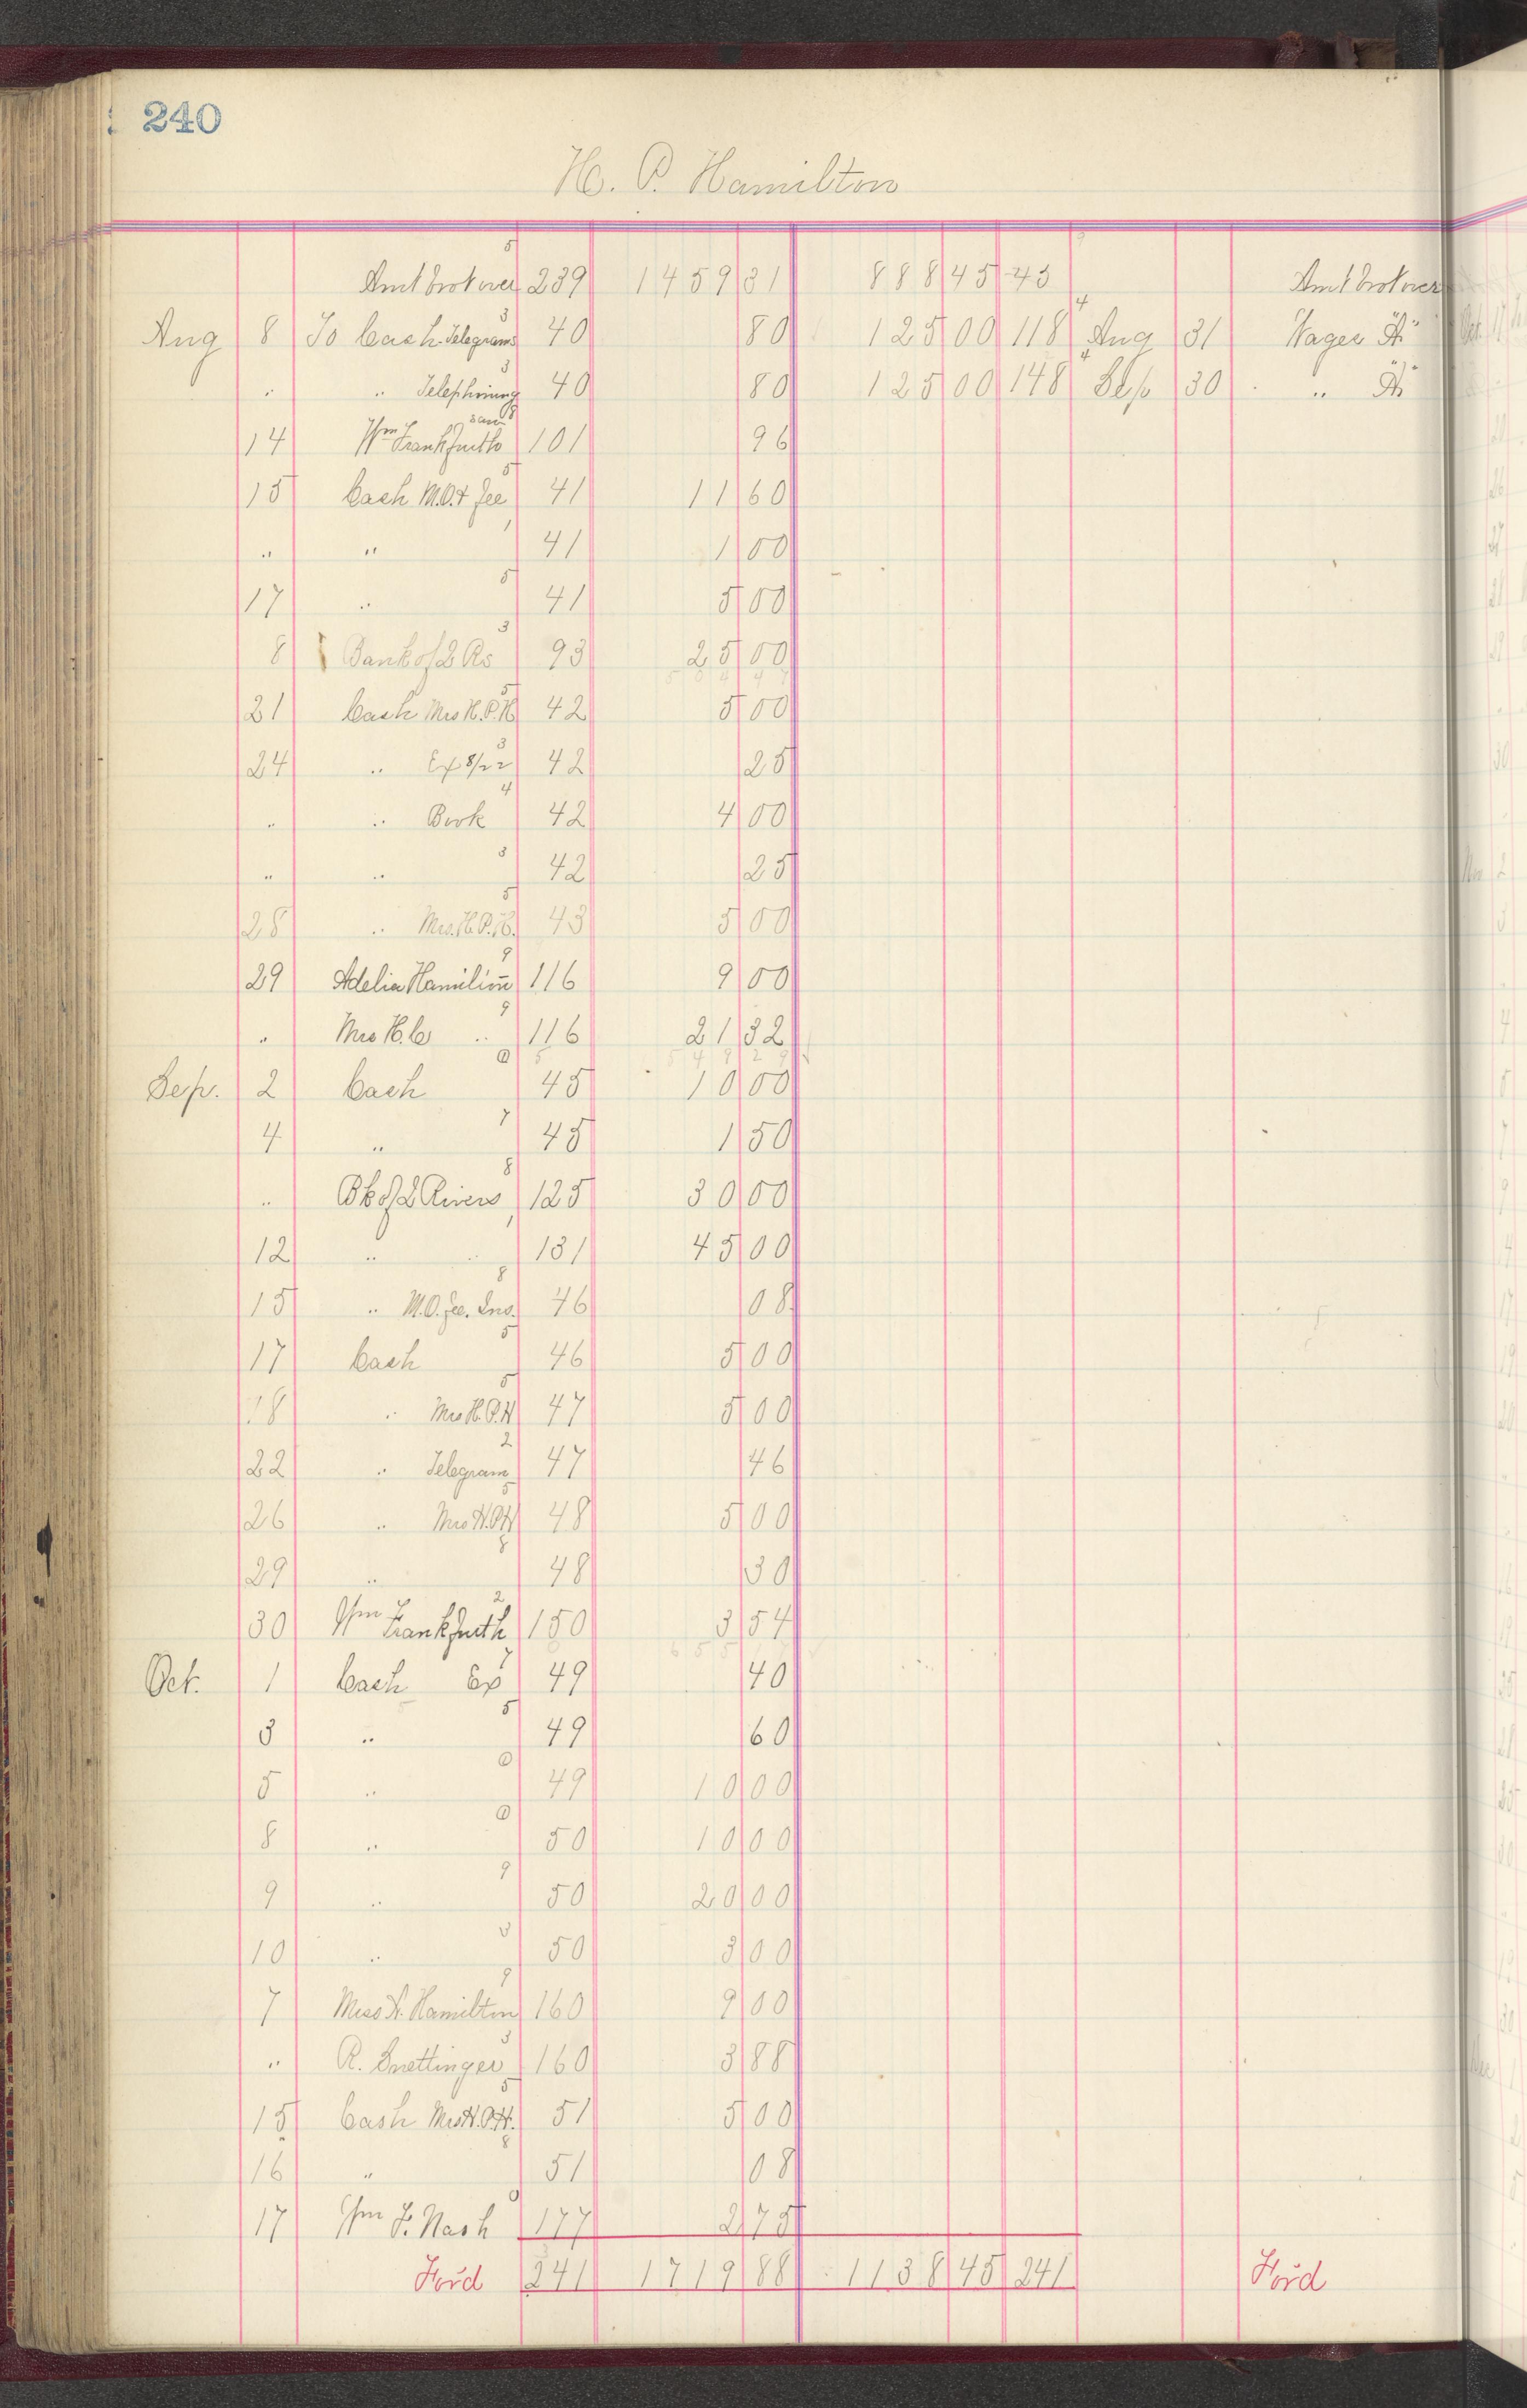 240
H. P. Hamilton
5
Amt brot over 239 1459 31 888 45 43 Amt brot over
3 4
Aug 8 To Cash Telegrams 40 80 125 00 118 Aug 31 Wages "A"
3 4
" " Telephoning 40 80 125 00 148 Sep 30 " "A"
8
14 Wm Frankfurth 101 96
5
15 Cash M.O. & Fee 41 11 60
1
" " 41 1 00
5
17 " 41 5 00
3
8 Bank of 2 Rs 93 25 00
5
21 Cash Mrs H.P.H 42 5 00
3
24 " Ex 8/22 42 25
4
" " Book 42 4 00
3
" " 42 25
5
28 " Mrs. H.P.H. 43 5 00
9
29 Adelia Hamilton 116 9 00
9
" Mrs H.C " 116 21 32
0
Sep. 2 Cash 45 10 00
7
4 " 45 1 50
8
" Bk of 2 Rivers 125 30 00
1
12 " " 131 45 00
8
15 " M.O. Fee. Ins. 46 08
5
17 Cash 46 5 00
5
18 " Mrs H.P.H 47 5 00
2
22 " Telegram 47 46
5
26 " Mrs H.P.H 48 5 00
8
29 " 48 30
2
30 Wm Frankfurth 150 3 54
7
Oct. 1 Cash Ex 49 40
5
3 " 49 60
0
5 " 49 10 00
0
8 " 50 10 00
9
9 " 50 20 00
3
10 " 50 3 00
9
7 Miss A. Hamilton 160 9 00
3
" R. Suettinger 160 3 88
5
15 Cash Mrs H.P.H. 51 5 00
8
16 " 51 08
0
17 Wm F. Nash 177 2 75
Ford 241 1719 88 1138 45 241 Ford